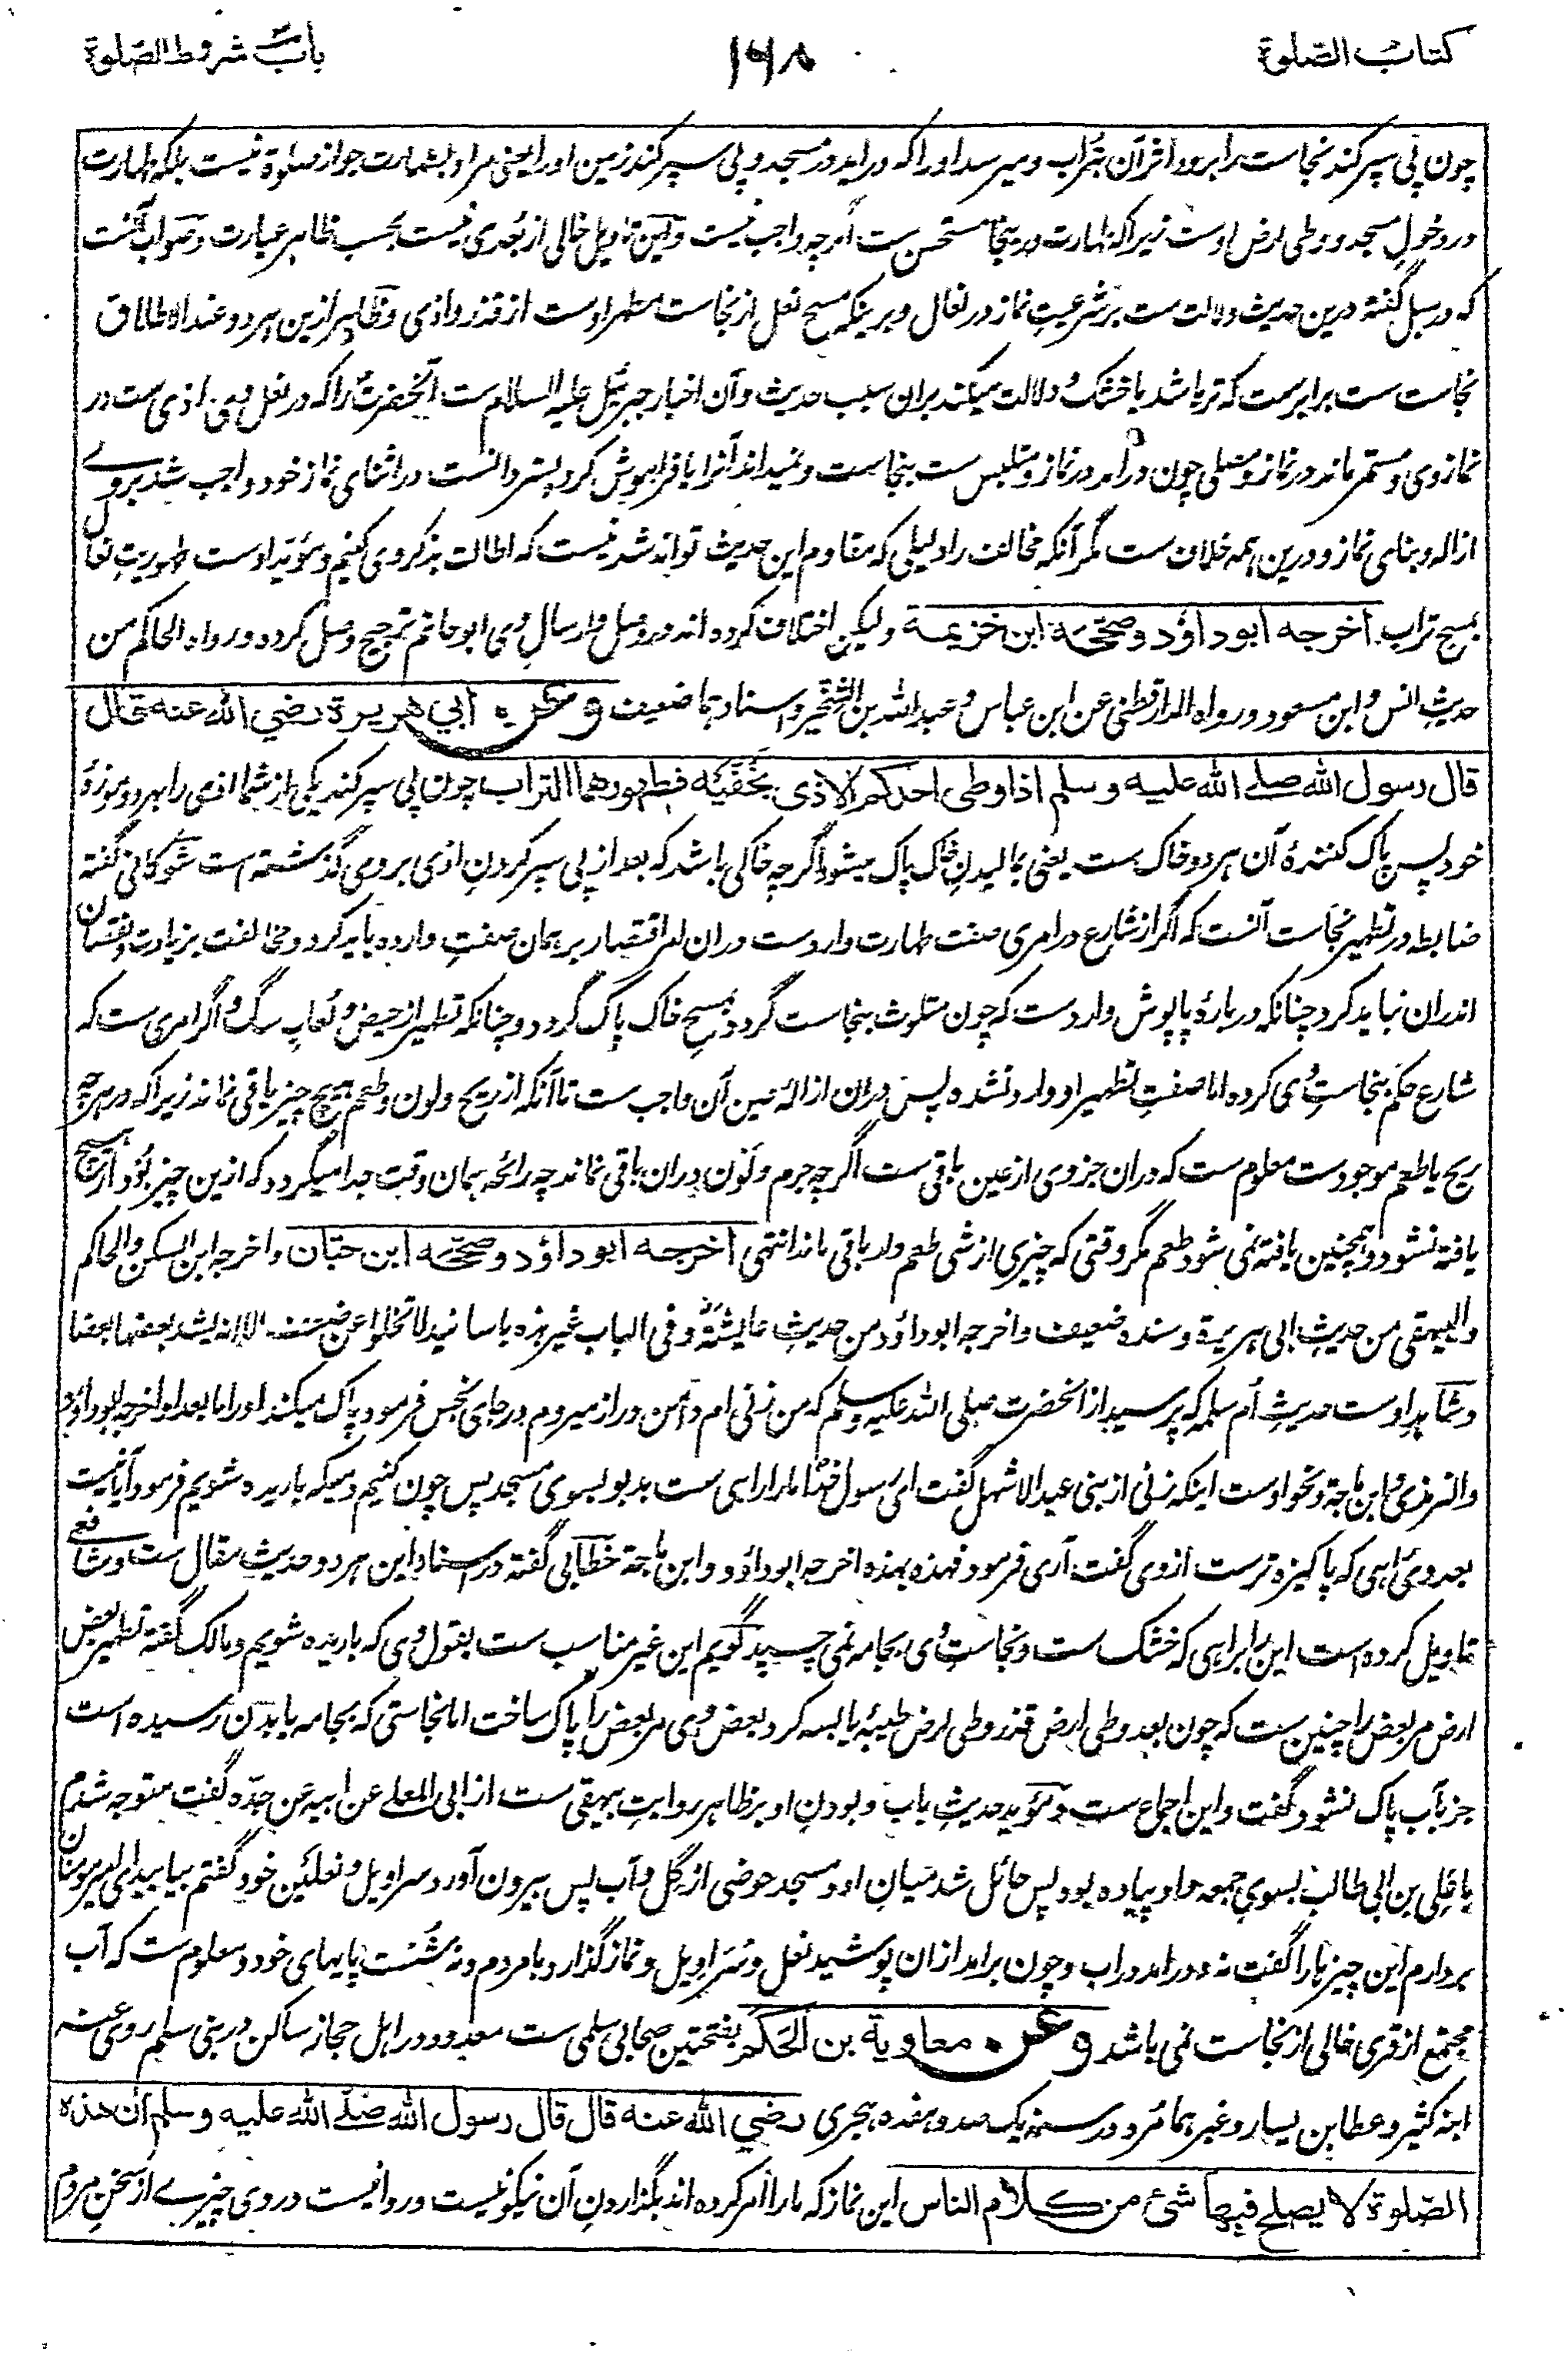 کتاب الصّلوة
۱۶۸
باب شروط الصّلوة
چون پی سپر کند نجاست را برود اثر آن بتراب و میرسد او را که در اید در مسجد و پی سپر کند زمین او را یعنی مراد بطهارت جواز صلوة نیست بلکه طهارت
در دخول مسجد و وطی ارض اوست زیرا که طهارت درینجا مستحسن ست اگرچه واجب نیست و این تاویل خالی از بعدی نیست بحسب ظاهر عبارت و صواب آنست
که در سبل گفته درین حدیث دلالت ست بر شرعیت نماز در نعال و برینکه مسح نعل از نجاست مطهر اوست از قذر و اذی و ظاهر ازین هر دو عند الاطلاق
نجاست ست برابرست که تر باشد یا خشک و دلالت میکند بران سبب حدیث و آن اخبار جبرئیل علیه السلام ست آنحضرت را که در نعل وی اذی ست در
نماز وی و مستمر ماند در نماز و مصلی چون در آمد در نماز و متلبس ست بنجاست و نمیداند آنرا یا فراموش کرد پستر دانست در اثنای نماز خود واجب شد بروے
ازاله و بنای نماز و درین همه خلاف ست مگر آنکه مخالف را دلیلی که مقاوم این حدیث تواند شد نیست که اطالت بذکر وی کنیم و مؤید اوست طهوریت نعال
بمسح تراب اخرجه ابوداؤد وصححه ابن خزیمة ولیکن اختلاف کرده اند در وصل و ارسال وی ابو حاتم ترجیح وصل کرده و رواه الحاکم من
حدیث انس و ابن مسعود و رواه الدارقطنی عن ابن عباس و عبدالله بن الشخیر و اسنادهما ضعیف وعن ابي هریرة رضي الله عنه قال
قال رسول الله صلے الله علیه وسلم اذا وطی احدکم الاذی بخفیه فطهورهما التراب چون پی سپر کند یکی از شما اذی را بهر دو موزهٔ
خود پس پاک کنندهٔ آن هر دو خاک ست یعنی بمالیدن خاک پاک میشود اگرچه خاکی باشد که بعد از پی سپر کردن اذی بروی گذشته است شوکانی گفته
ضابطه در تطهیر نجاست آنست که اگر از شارع در امری صفت طهارت واردست دران امر اقتصار بر همان صفت وارده باید کرد و مخالفت بزیادت و نقصان
اندران نباید کرد چنانکه دربارهٔ پاپوش واردست که چون متلوث بنجاست گردد بمسح خاک پاک گردد و چنانکه تطهیر از حیض و لعاب سگ و اگر امری ست که
شارع حکم بنجاست وی کرده اما صفت تطهیر او وارد نشده پس دران ازالهٔ عین آن واجب ست تا آنکه از ریح و لون و طعم هیچ چیز باقی نماند زیرا که در هرچه
ریح یا طعم موجودست معلوم ست که دران جزوی از عین باقی ست اگرچه جرم و لون دران باقی نماند چه رائحه بهمان وقت جدا میگردد که ازین چیز بود اگر هیچ
یافته نشود و همچنین یافته نمی شود طعم مگر وقتی که چیزی از شی طعم دار باقی ماند انتهی اخرجه ابوداؤد وصححه ابن حبان و اخرجه ابن السکن و الحاکم
والبیهقی من حدیث ابی هریرة وسنده ضعیف واخرجه ابوداؤد من حدیث عایشة وفی الباب غیر هذه باسانید لا تخلوا عن ضعف الا انه یشد بعضها بعضا
و شاهد اوست حدیث ام سلمه که پرسید از آنحضرت صلی الله علیه وسلم که من زنی ام دامن دراز میروم در جای نجس فرمود پاک میکند او را ما بعد او اخرجه ابوداؤد
والترمذی و ابن ماجة و نحو اوست اینکه زنی از بنی عبد الاشهل گفت ای رسول خدا ما را راهی ست بدبو بسوی مسجد پس چون کنیم وقتیکه باریده شویم فرمود آیا نیست
بعد وی راهی که پاکیزه ترست ازوی گفت آری فرمود فهذه بهذه اخرجه ابوداؤد و ابن ماجة خطابی گفته در اسناد این هر دو حدیث مقال ست و شافعی
تاویل کرده است این را براهی که خشک ست و نجاست وی بجامه نمی چسپد گویم این غیر مناسب ست بقول وی که باریده شویم و مالک گفته تطهیر بعض
ارض مر بعض را چنین ست که چون بعد وطی ارض قذر وطی ارض طیبهٔ یابسه کرد بعض وی مر بعض را پاک ساخت اما نجاستی که بجامه یا بدن رسیده است
جز بآب پاک نشود گفت و این اجماع ست و مؤید حدیث باب و بودن او بر ظاهر روایت بیهقی ست از ابی المعلے عن ابیه عن جده گفت متوجه شدم
با علی بن ابی طالب بسوی جمعه و او پیاده بود پس حائل شد میان او و مسجد حوضی از گل و آب پس بیرون آورد سراویل و نعلین خود گفتم بیا بید ای امیر مومنان
بردارم این چیزها را گفت نه و در امد در اب و چون برامد ازان پوشید نعل و سراویل و نماز گذارد با مردم و نه شست پایهای خود و معلوم ست که آب
مجتمع از قری خالی از نجاست نمی باشد وعن معاویة بن الحکم بفتحتین صحابی سلمی ست معدود در اهل حجاز ساکن در بنی سلیم روی عنه
ابنه کثیر و عطا بن یسار و غیرهما مرد در سنه یک صد و هفده هجری رضي الله عنه قال قال رسول الله صلے الله علیه وسلم ان هذه
الصلوة لا یصلح فیها شئ من کلام الناس این نماز که ما را امر کرده اند بگذاردن آن نیکو نیست و روا نیست در وی چیزے از سخن مردم